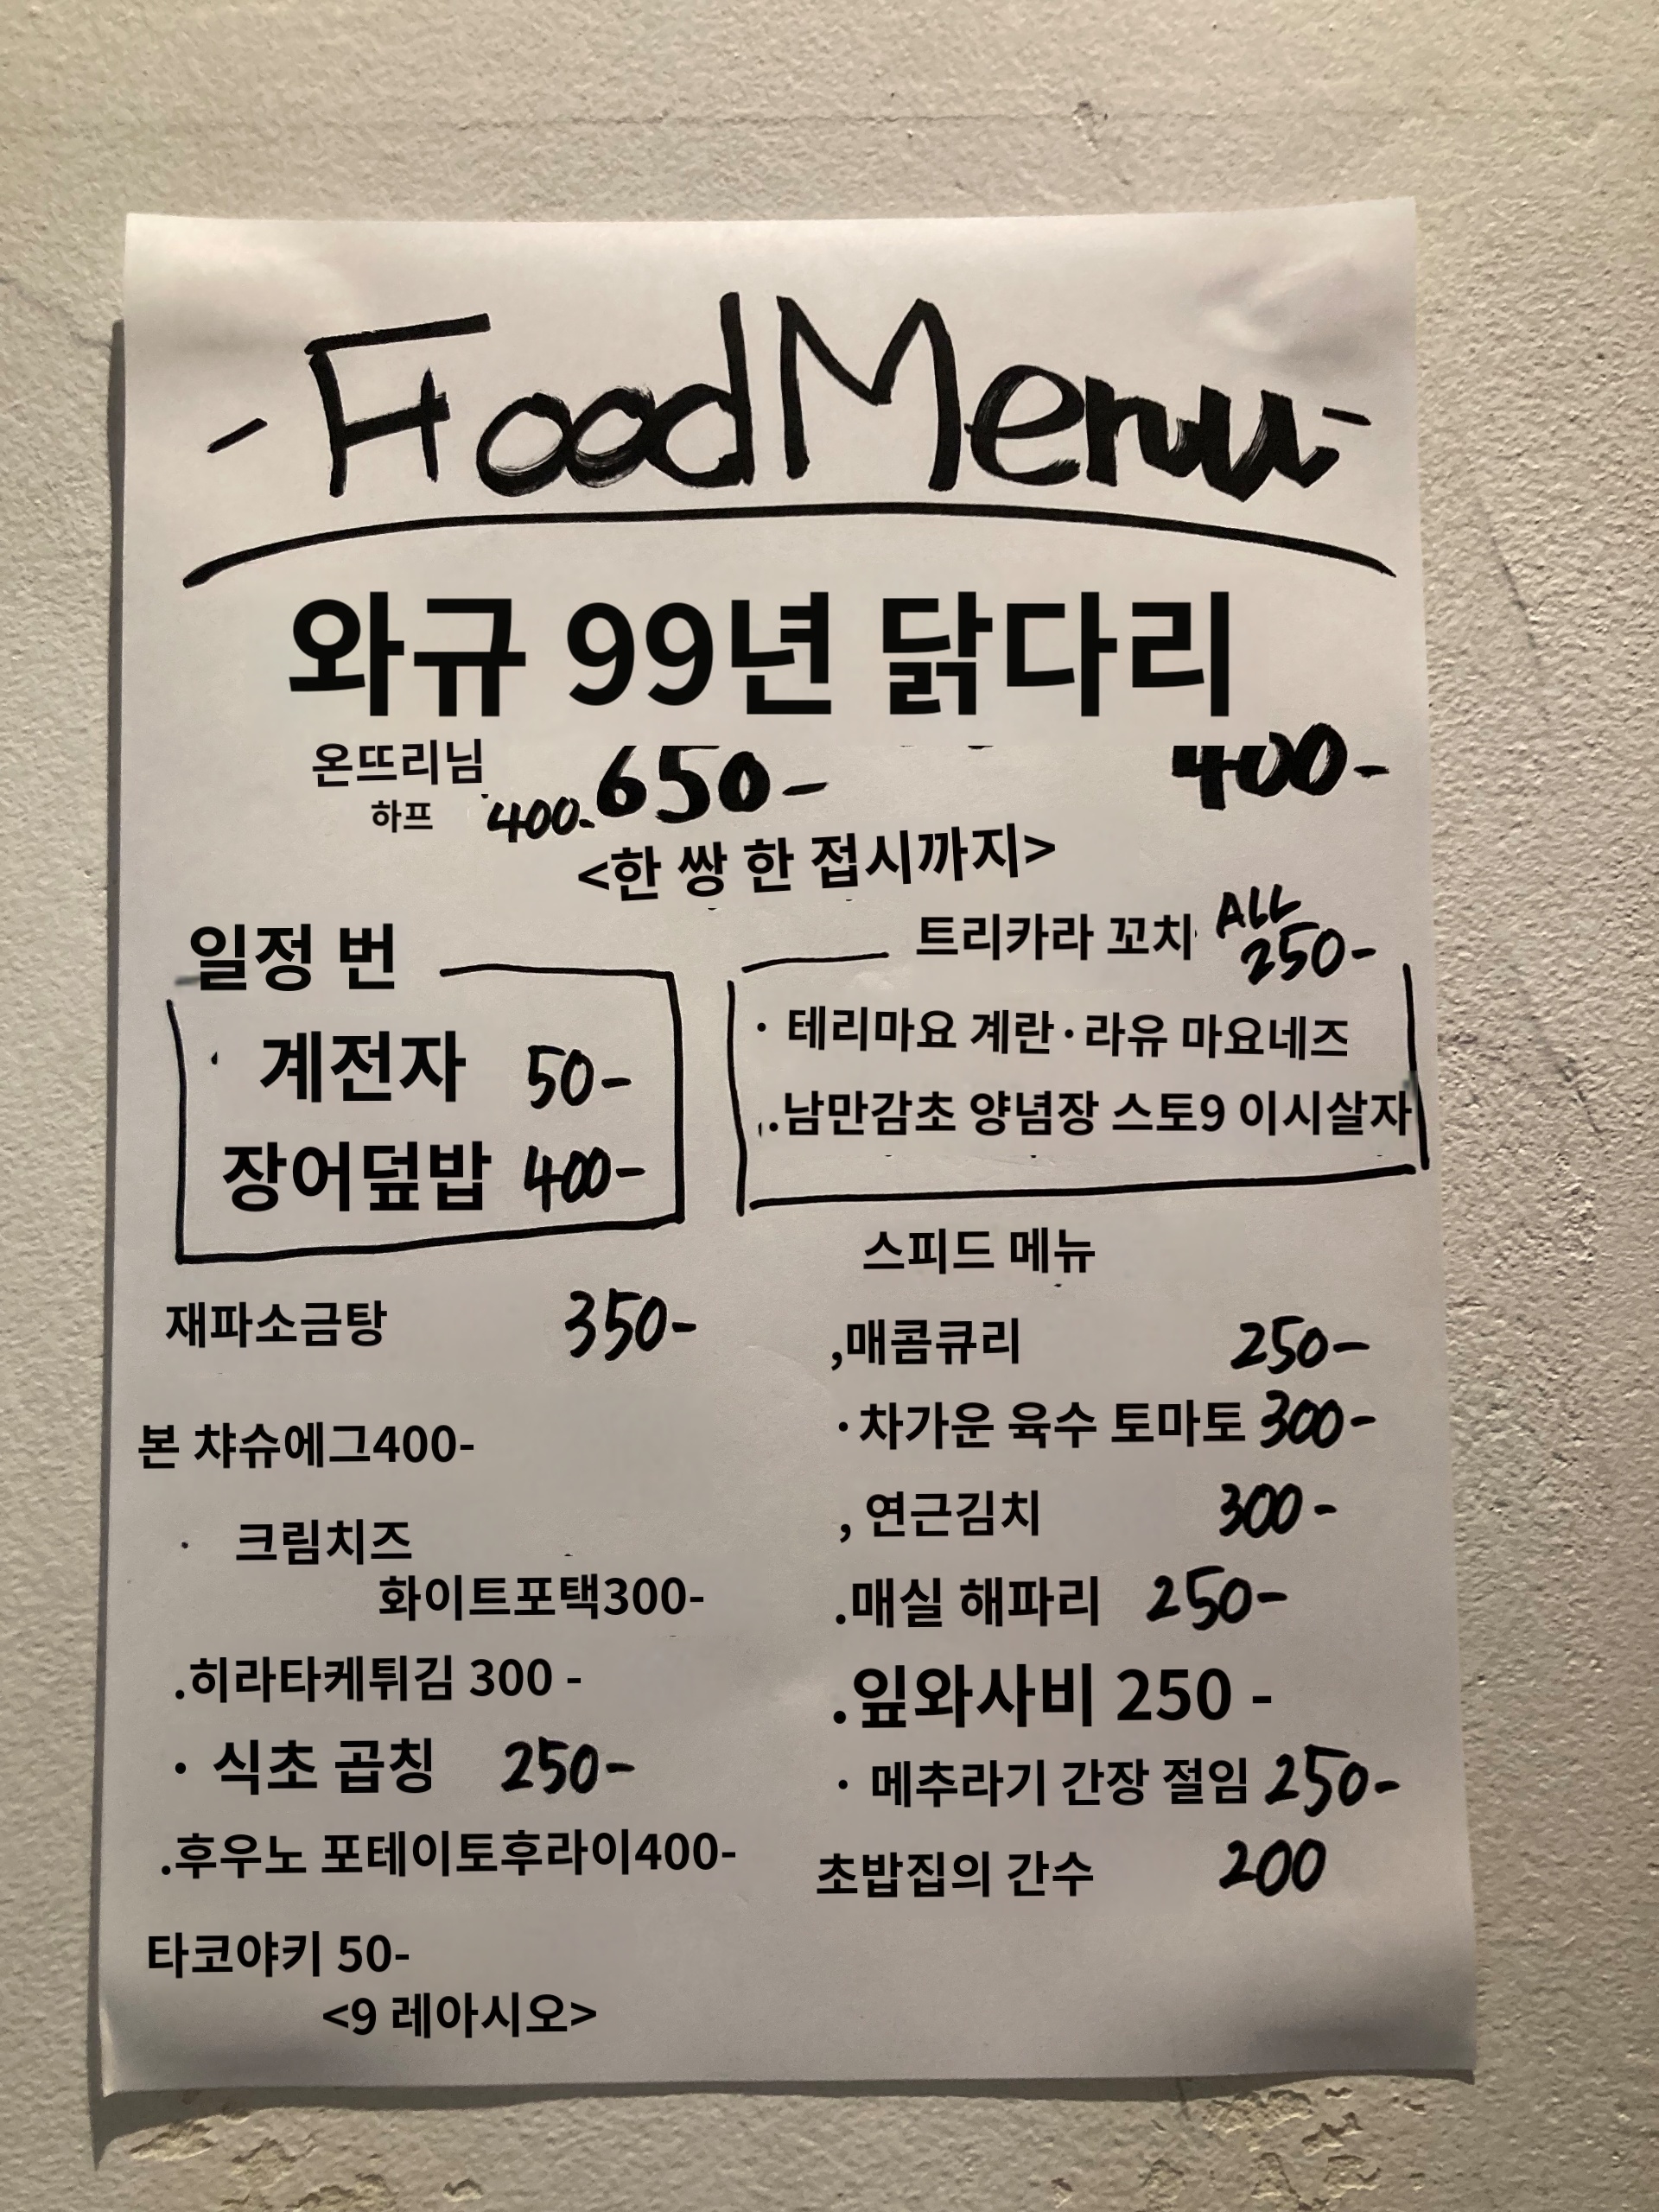 - Food Menu -
와규 99년 닭다리
온뜨리님 650- 400-
하프 400-
<한 쌍 한 접시까지>
일정 번
계전자 50-
장어덮밥 400-
트리카라 꼬치 ALL 250-
· 테리마요 계란·라유 마요네즈
.남만감초 양념장 스토9 이시살자
재파소금탕 350-
본 챠슈에그400-
· 크림치즈
화이트포택300-
.히라타케튀김 300 -
· 식초 곱칭 250-
.후우노 포테이토후라이400-
타코야키 50-
<9 레아시오>
스피드 메뉴
,매콤큐리 250-
·차가운 육수 토마토 300-
, 연근김치 300-
.매실 해파리 250-
.잎와사비 250 -
· 메추라기 간장 절임 250-
초밥집의 간수 200